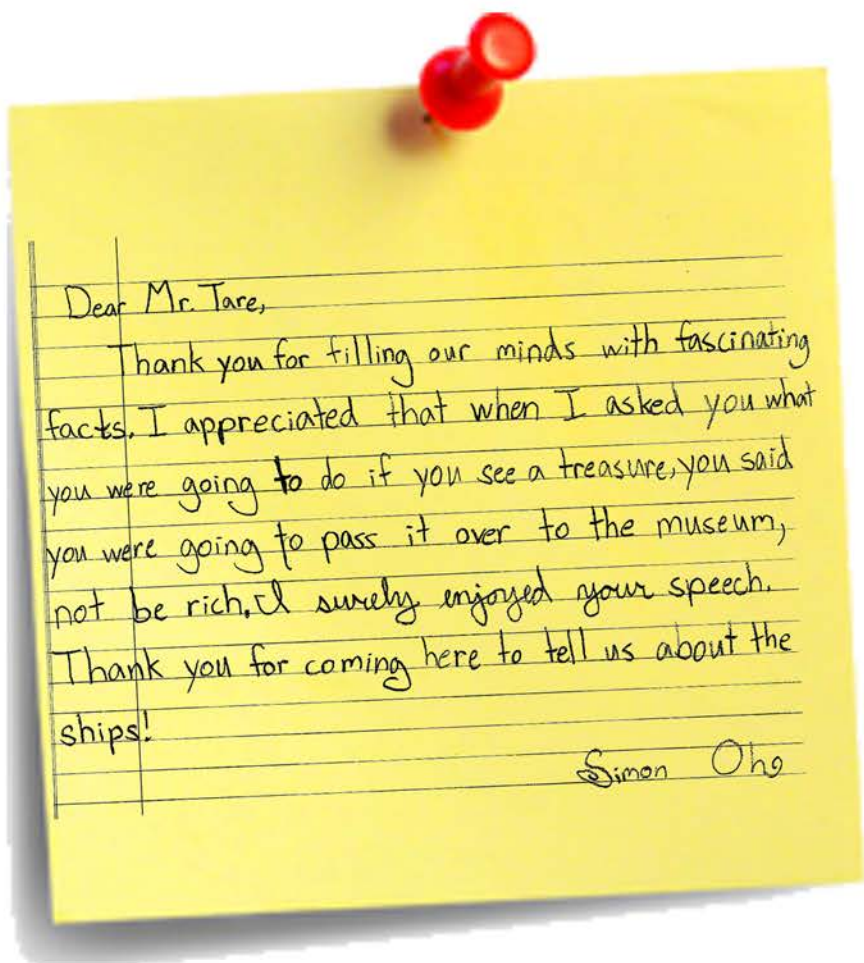 Dear Mr. Tare,
Thank you for filling our minds with fascinating
facts. I appreciated that when I asked you what
you were going to do if you see a treasure, you said
you were going to pass it over to the museum,
not be rich. I surely enjoyed your speech.
Thank you for coming here to tell us about the
ships!
Simon